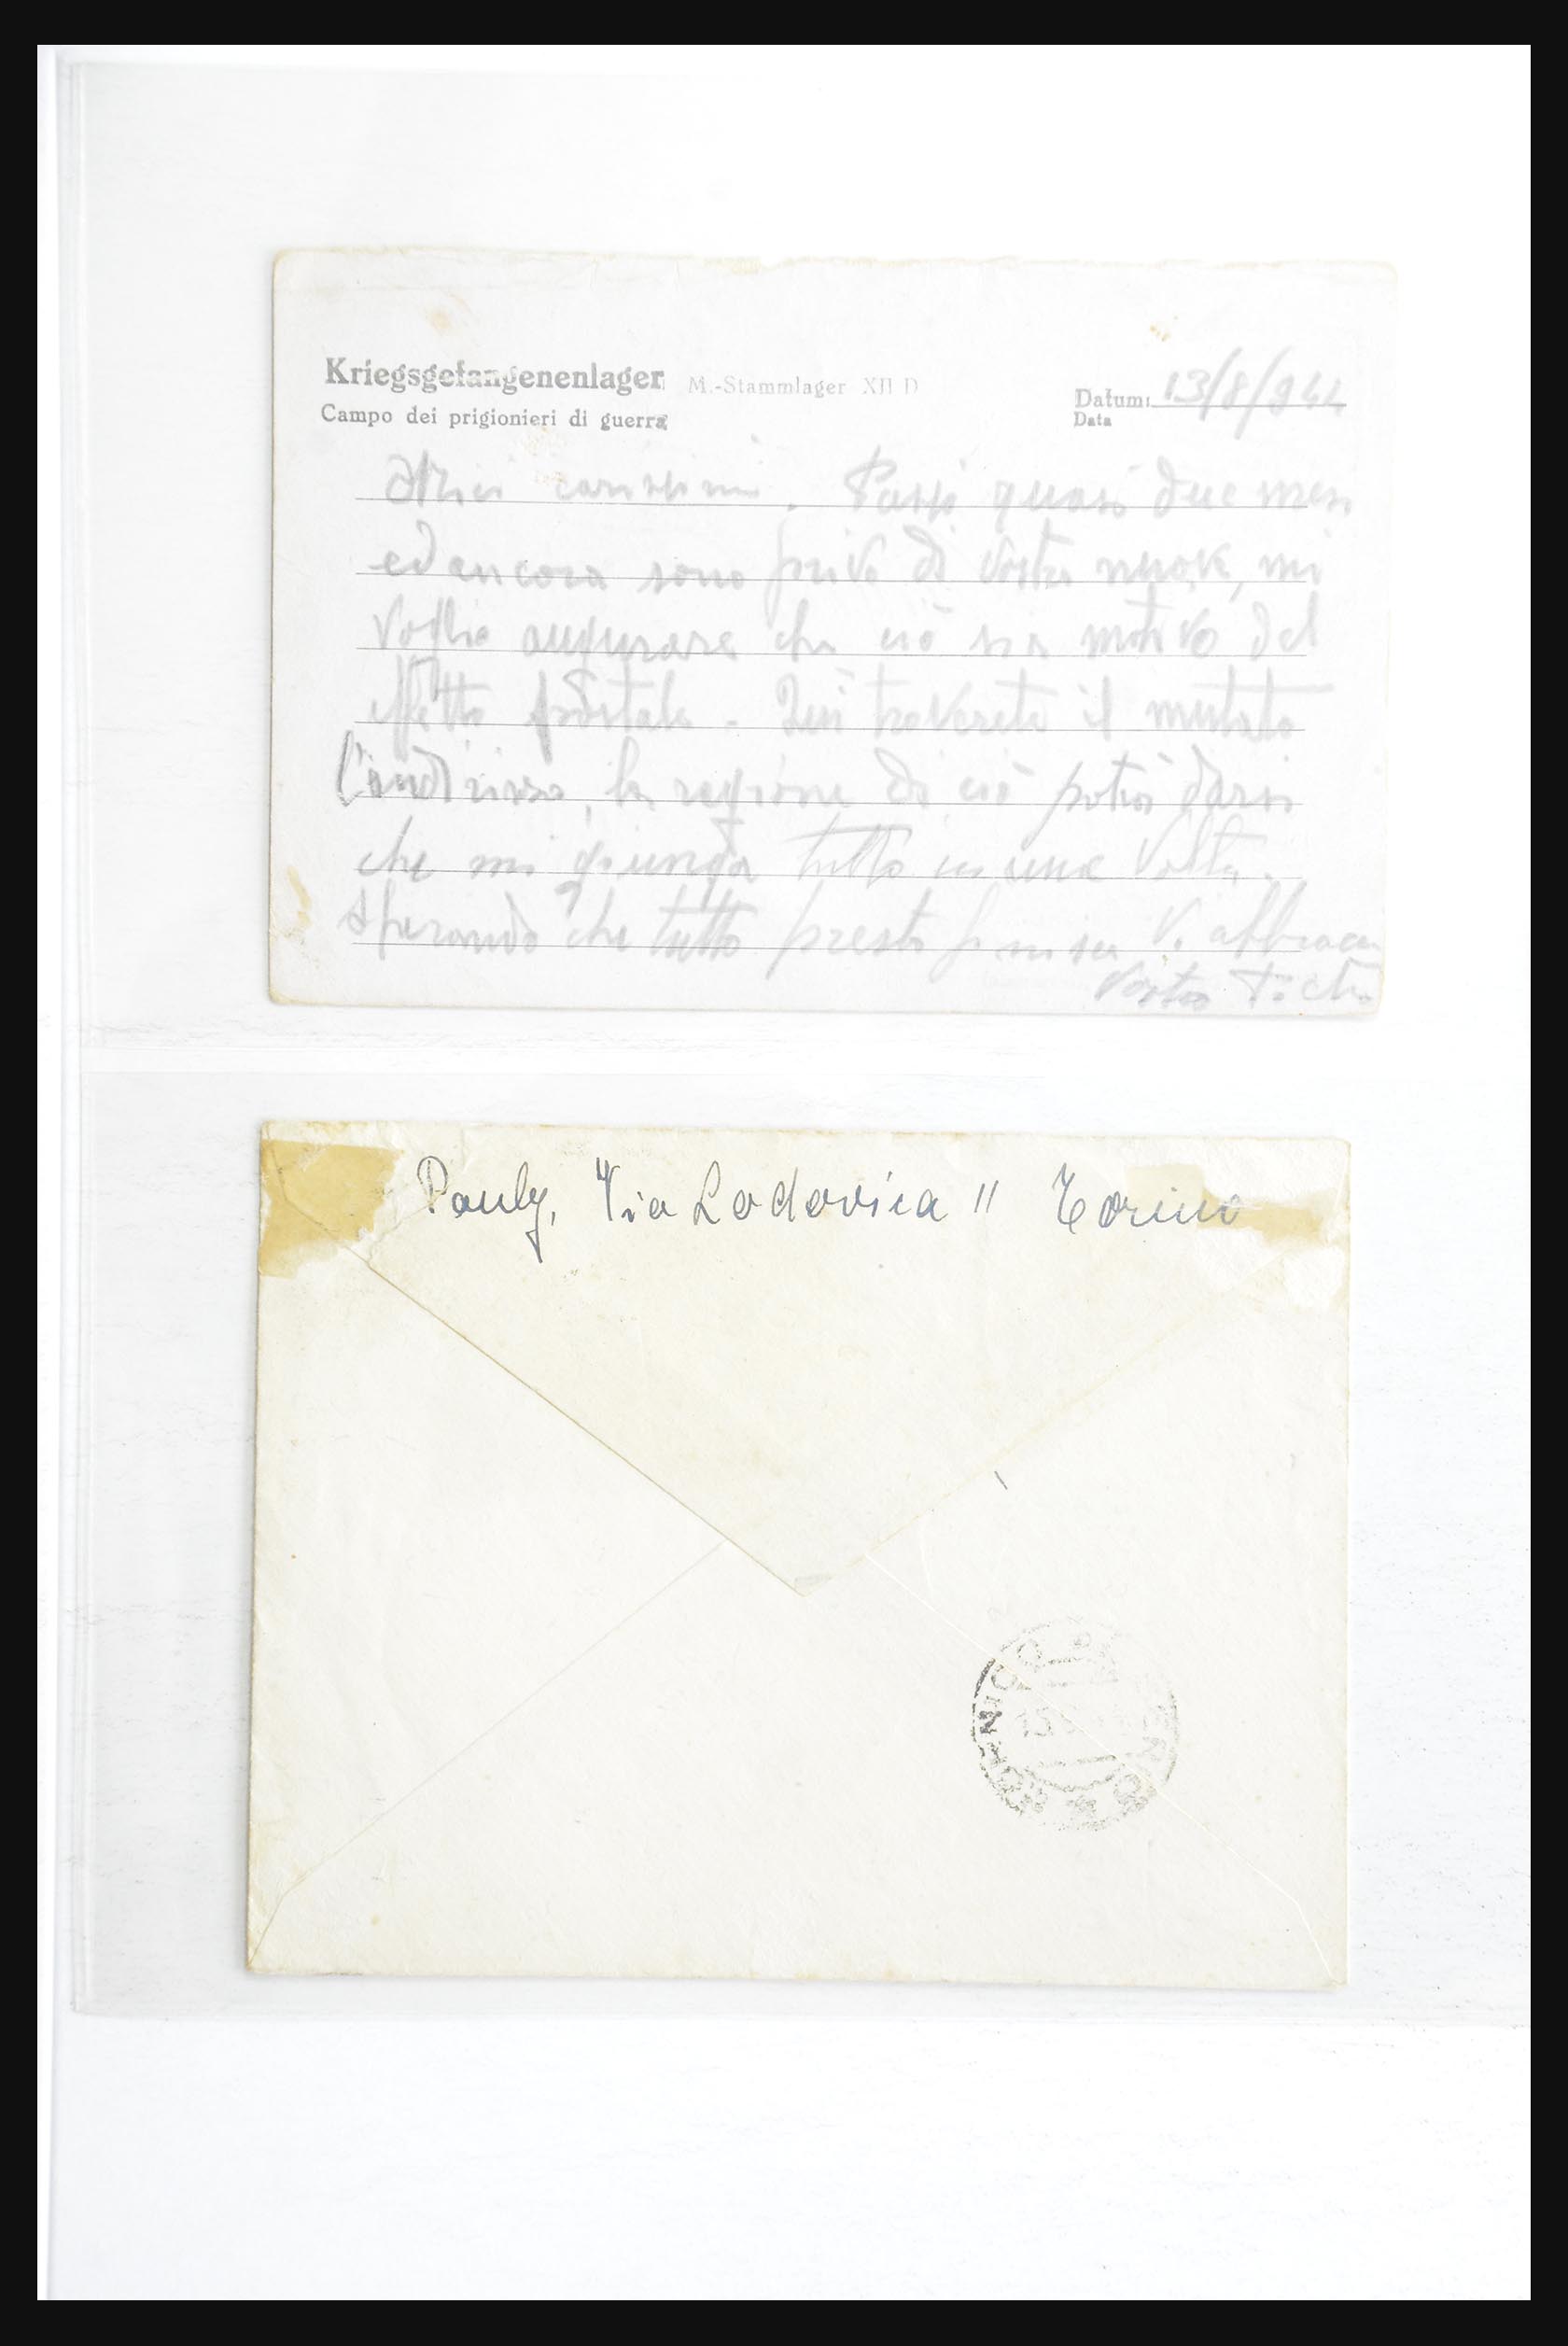 Kriegsgefangenenlager M.-Stammlager XII D
Campo dei prigionieri di guerra
Datum: 13/8/944
Data
Miei carissimi. Passi quasi due mesi
ed ancora sono privo di vostre nuove, mi
voglio augurare che ciò sia motivo del
postale. Qui troverete il mutato
l'indirizzo, la ragione di ciò potrà darsi
che mi giunga tutto in una volta.
Sperando che tutto presto finisca Vi abbraccia
Vostro
Pauly, Via Lodovica 11 Torino